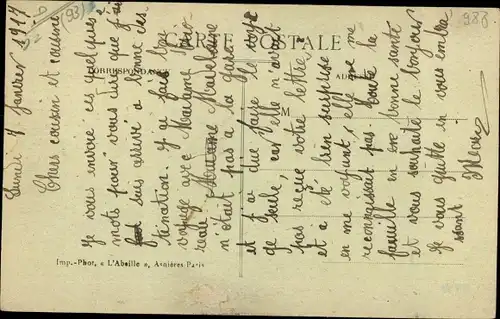 Lundi 7 Janvier 1917
(93)
986
CARTE POSTALE
CORRESPONDANCE
ADRESSE
M
Chers cousin et cousine
Je vous envoie ces quelques
mots pour vous dire que j'ai
suis arrivé a bonne des
tination. J'ai fait bon
voyage avec Madame
n'était pas a la gare
et j'ai due faire le voyage
seule, car elle n'avait
pas reçue votre lettre
et a été bien surprise
en me voyant, elle ne me
reconnaissait pas. Toute la
famille en en bonne santé
et vous souhaite le bonjour
Je vous quitte en vous embra
ssant.
Imp.-Phot. « L'Abeille », Asnières-Paris